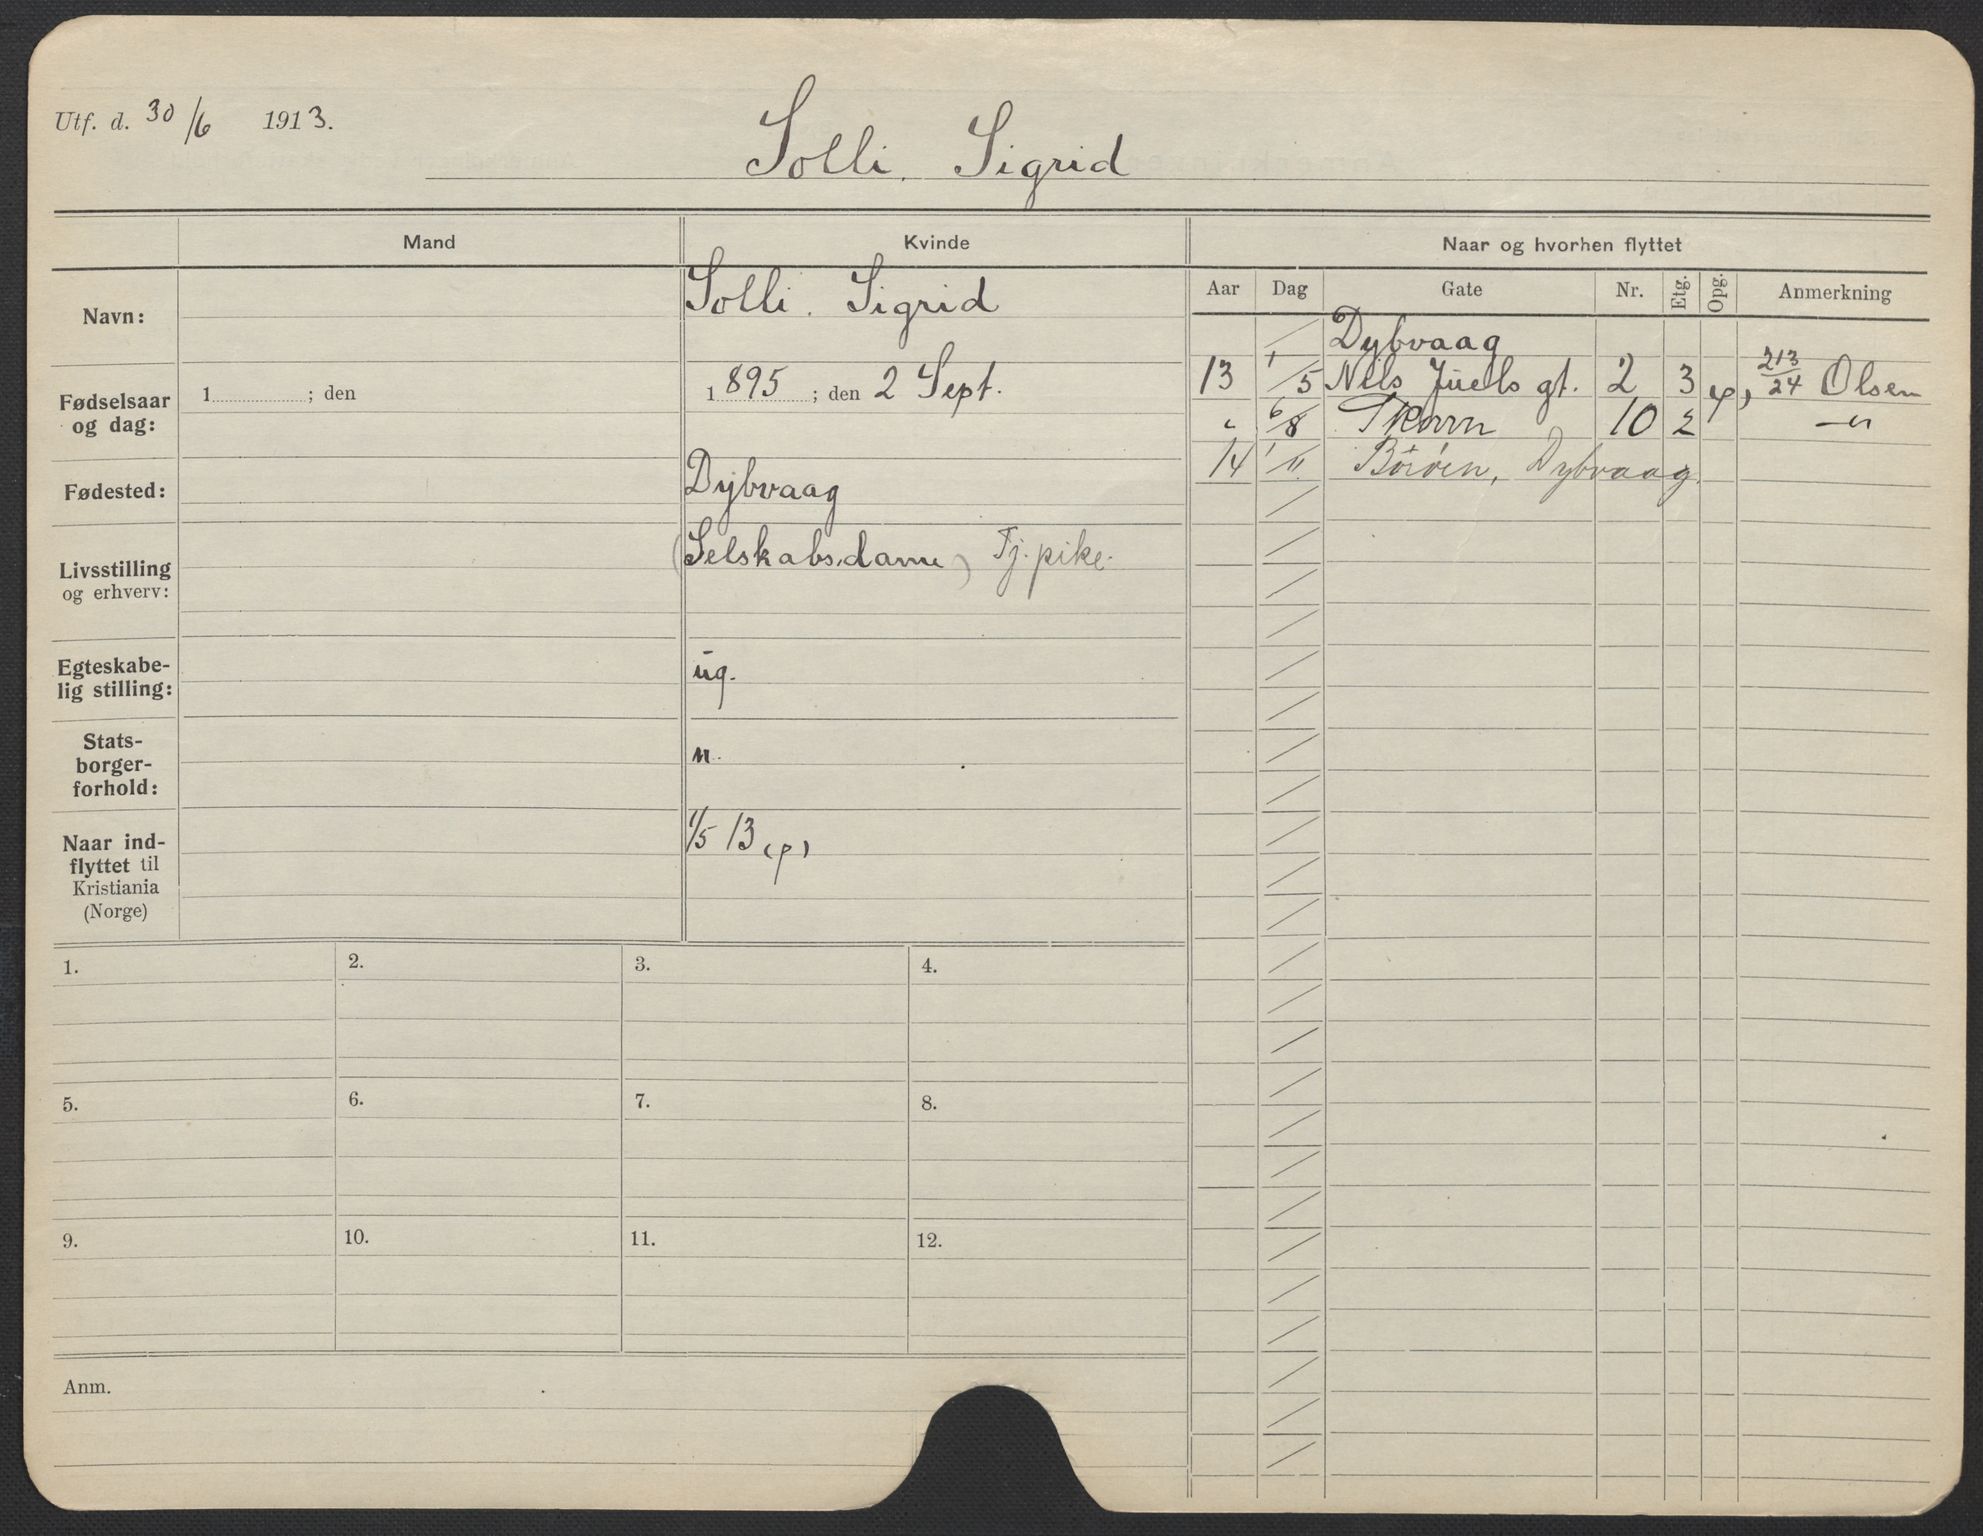 Utf. d. 30/6 1913.
Solli, Sigrid
Mand
Kvinde
Naar og hvorhen flyttet
Aar Dag Gate Nr. Etg. Opg. Anmerkning
Navn:
Solli, Sigrid
Fødselsaar og dag:
1 ; den
1895 ; den 2 Sept.
Fødested:
Dybvaag
Livsstilling og erhverv:
(Selskabsdame) Tj. pike.
Egteskabe-
lig stilling:
ug.
Stats-
borger-
forhold:
n.
Naar ind-
flyttet til
Kristiania
(Norge)
1/5 13 (p)
Dybvaag
13 1/5 Nils Juels gt. 2 3 213/24 Olsen
" 6/8 10 2 —"
14 1/11 Börøen, Dybvaag.
1. 2. 3. 4.
5. 6. 7. 8.
9. 10. 11. 12.
Anm.